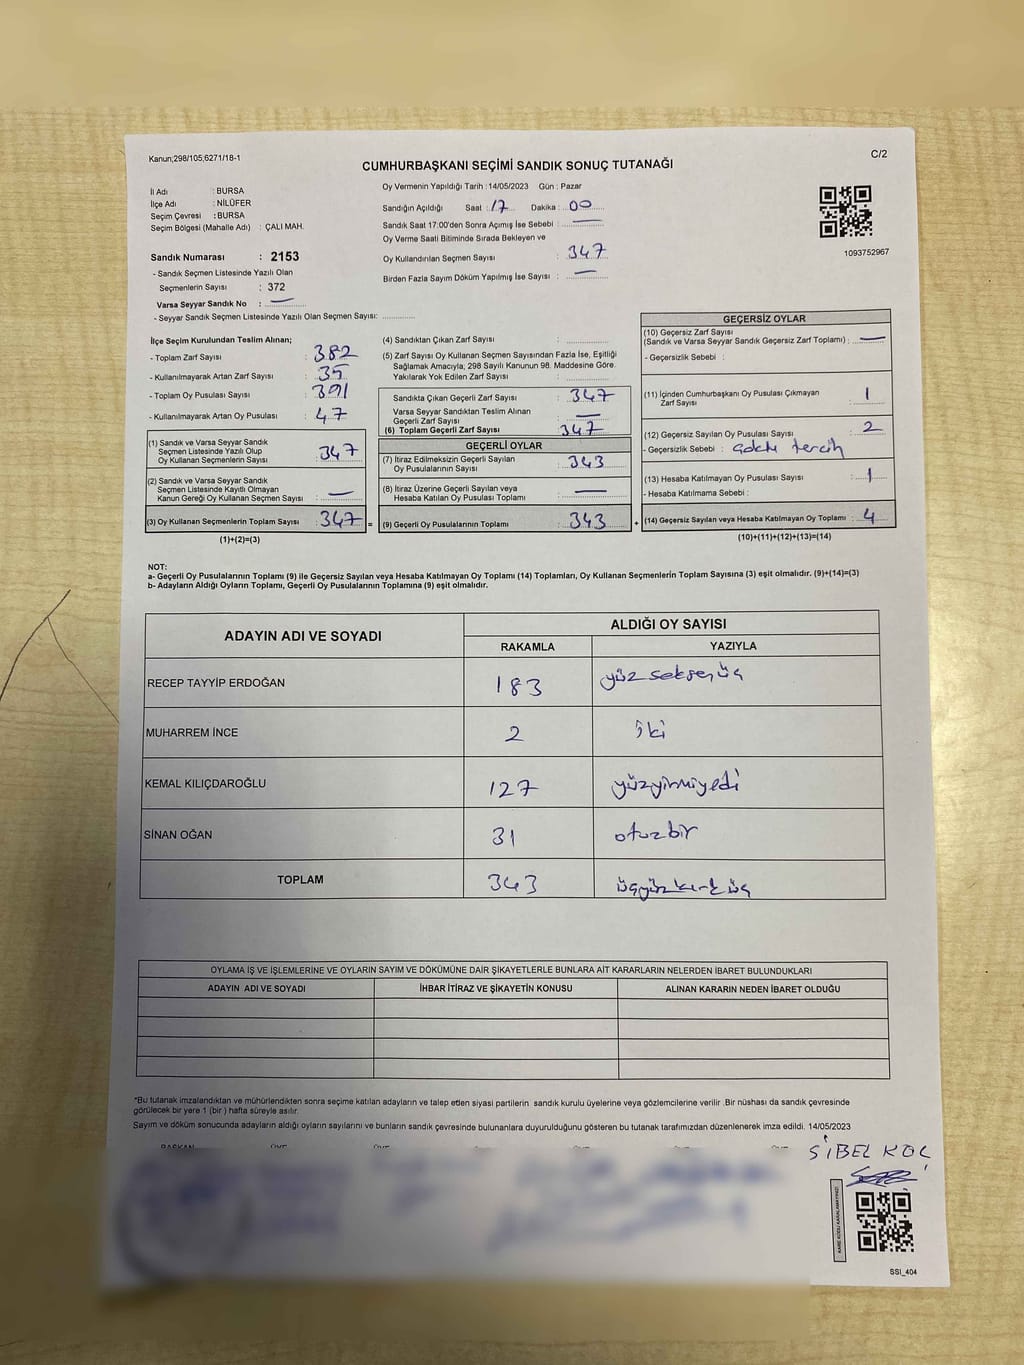 Kanun;298/105;6271/18-1
CUMHURBAŞKANI SEÇİMİ SANDIK SONUÇ TUTANAĞI
C/2
İl Adı : BURSA
İlçe Adı : NİLÜFER
Seçim Çevresi : BURSA
Seçim Bölgesi (Mahalle Adı) : ÇALI MAH.
Sandık Numarası : 2153
- Sandık Seçmen Listesinde Yazılı Olan
Seçmenlerin Sayısı : 372
Varsa Seyyar Sandık No : —
- Seyyar Sandık Seçmen Listesinde Yazılı Olan Seçmen Sayısı:
Oy Vermenin Yapıldığı Tarih : 14/05/2023 Gün : Pazar
Sandığın Açıldığı Saat : 17 Dakika : 00
Sandık Saat 17:00'den Sonra Açımış İse Sebebi : —
Oy Verme Saati Bitiminde Sırada Bekleyen ve
Oy Kullandırılan Seçmen Sayısı : 347
Birden Fazla Sayım Döküm Yapılmış İse Sayısı : —
1093752967
İlçe Seçim Kurulundan Teslim Alınan;
- Toplam Zarf Sayısı : 382
- Kullanılmayarak Artan Zarf Sayısı : 35
- Toplam Oy Pusulası Sayısı : 391
- Kullanılmayarak Artan Oy Pusulası : 47
(1) Sandık ve Varsa Seyyar Sandık
Seçmen Listesinde Yazılı Olup
Oy Kullanan Seçmenlerin Sayısı : 347
(2) Sandık ve Varsa Seyyar Sandık
Seçmen Listesinde Kayıtlı Olmayan
Kanun Gereği Oy Kullanan Seçmen Sayısı : —
(3) Oy Kullanan Seçmenlerin Toplam Sayısı : 347 =
(1)+(2)=(3)
(4) Sandıktan Çıkan Zarf Sayısı :
(5) Zarf Sayısı Oy Kullanan Seçmen Sayısından Fazla İse, Eşitliği
Sağlamak Amacıyla; 298 Sayılı Kanunun 98. Maddesine Göre.
Yakılarak Yok Edilen Zarf Sayısı :
Sandıkta Çıkan Geçerli Zarf Sayısı : 347
Varsa Seyyar Sandıktan Teslim Alınan
Geçerli Zarf Sayısı : —
(6) Toplam Geçerli Zarf Sayısı : 347
GEÇERLİ OYLAR
(7) İtiraz Edilmeksizin Geçerli Sayılan
Oy Pusulalarının Sayısı : 343
(8) İtiraz Üzerine Geçerli Sayılan veya
Hesaba Katılan Oy Pusulası Toplamı : —
(9) Geçerli Oy Pusulalarının Toplamı : 343 +
GEÇERSİZ OYLAR
(10) Geçersiz Zarf Sayısı
(Sandık ve Varsa Seyyar Sandık Geçersiz Zarf Toplamı) : —
- Geçersizlik Sebebi :
(11) İçinden Cumhurbaşkanı Oy Pusulası Çıkmayan
Zarf Sayısı : 1
(12) Geçersiz Sayılan Oy Pusulası Sayısı : 2
- Geçersizlik Sebebi : tercih
(13) Hesaba Katılmayan Oy Pusulası Sayısı : 1
- Hesaba Katılmama Sebebi :
(14) Geçersiz Sayılan veya Hesaba Katılmayan Oy Toplamı : 4
(10)+(11)+(12)+(13)=(14)
NOT:
a- Geçerli Oy Pusulalarının Toplamı (9) ile Geçersiz Sayılan veya Hesaba Katılmayan Oy Toplamı (14) Toplamları, Oy Kullanan Seçmenlerin Toplam Sayısına (3) eşit olmalıdır. (9)+(14)=(3)
b- Adayların Aldığı Oyların Toplamı, Geçerli Oy Pusulalarının Toplamına (9) eşit olmalıdır.
ADAYIN ADI VE SOYADI ALDIĞI OY SAYISI
RAKAMLA YAZIYLA
RECEP TAYYİP ERDOĞAN 183 yüz seksenüç
MUHARREM İNCE 2 iki
KEMAL KILIÇDAROĞLU 127 yüzyirmiyedi
SİNAN OĞAN 31 otuzbir
TOPLAM 343 üçyüzkırküç
OYLAMA İŞ VE İŞLEMLERİNE VE OYLARIN SAYIM VE DÖKÜMÜNE DAİR ŞİKAYETLERLE BUNLARA AİT KARARLARIN NELERDEN İBARET BULUNDUKLARI
ADAYIN ADI VE SOYADI İHBAR İTİRAZ VE ŞİKAYETİN KONUSU ALINAN KARARIN NEDEN İBARET OLDUĞU
*Bu tutanak imzalandıktan ve mühürlendikten sonra seçime katılan adayların ve talep etlen siyasi partilerin sandık kurulu üyelerine veya gözlemcilerine verilir .Bir nüshası da sandık çevresinde
görülecek bir yere 1 (bir ) hafta süreyle asılır.
Sayım ve döküm sonucunda adayların aldığı oyların sayılarını ve bunların sandık çevresinde bulunanlara duyurulduğunu gösteren bu tutanak tarafımızdan düzenlenerek imza edildi. 14/05/2023
SİBEL KOÇ
SSI_404